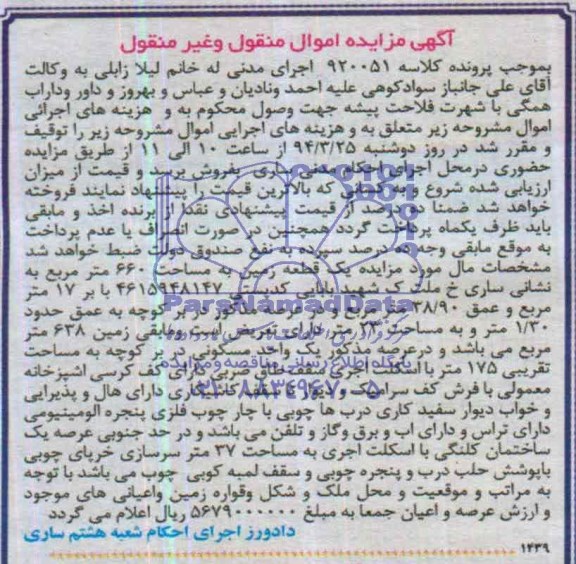 آگهی مزایده اموال منقول وغیر منقول
بموجب پرونده کلاسه ۹۲۰۰۵۱ اجرای مدنی له خانم لیلا زابلی به وکالت
آقای علی جانباز سوادکوهی علیه احمد ونادیان و عباس و بهروز و داور وداراب
همگی با شهرت فلاحت پیشه جهت وصول محکوم به و هزینه های اجرائی
اموال مشروحه زیر متعلق به و هزینه های اجرایی اموال مشروحه زیر را توقیف
و مقرر شد در روز دوشنبه ۹۴/۳/۲۵ از ساعت ۱۰ الی ۱۱ از طریق مزایده
حضوری درمحل اجرای احکام مدنی ساری بفروش برسد و قیمت از میزان
ارزیابی شده شروع و به کسانی که بالاترین قیمت را پیشنهاد نمایند فروخته
خواهد شد ضمنا ده درصد از قیمت پیشنهادی نقدا از برنده اخذ و مابقی
باید ظرف یکماه پرداخت گردد همچنین در صورت انصراف یا عدم پرداخت
به موقع مابقی وجه ده درصد سپرده به نفع صندوق دولت ضبط خواهد شد
مشخصات مال مورد مزایده یک قطعه زمین به مساحت ۶۶۰ متر مربع به
نشانی ساری خ ملت ک شهید بابایی کدپستی ۴۶۱۵۹۴۸۱۴۷ با بر ۱۷ متر
مربع و عمق ۳۸/۹۰ متر مربع و در عرصه مذکور در بر کوچه به عمق حدود
۱/۳۰ متر و به مساحت ۲۲ متر دارای تعریض است ومابقی زمین ۶۳۸ متر
مربع می باشد و درعرصه مذکور یک واحد مسکونی در بر کوچه به مساحت
تقریبی ۱۷۵ متر با اسکلت اجری سقف طاق ضربی دارای کف کرسی اشپزخانه
معمولی با فرش کف سرامیک و دیوار تا سقف کاشیکاری دارای هال و پذیرایی
و خواب دیوار سفید کاری درب ها چوبی با چار چوب فلزی پنجره الومینیومی
دارای تراس و دارای اب و برق وگاز و تلفن می باشد و در حد جنوبی عرصه یک
ساختمان کلنگی با اسکلت اجری به مساحت ۳۷ متر سرسازی خرپای چوبی
باپوشش حلب درب و پنجره چوبی و سقف لمبه کوبی چوب می باشد با توجه
به مراتب و موقعیت و محل ملک و شکل وقواره زمین واعیانی های موجود
و ارزش عرصه و اعیان جمعا به مبلغ ۵۶۷۹۰۰۰۰۰۰ ریال اعلام می گردد
دادورز اجرای احکام شعبه هشتم ساری
۱۴۳۹
ParsNamadData
پایگاه اطلاع رسانی مناقصه و مزایده
۰۲۱-۸۸۳۴۹۶۷۰-۵